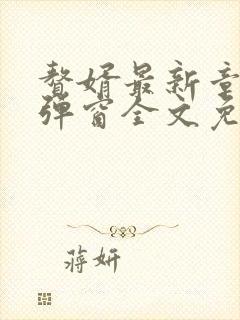 赘婿最新章
弹窗全文免
蒋妍